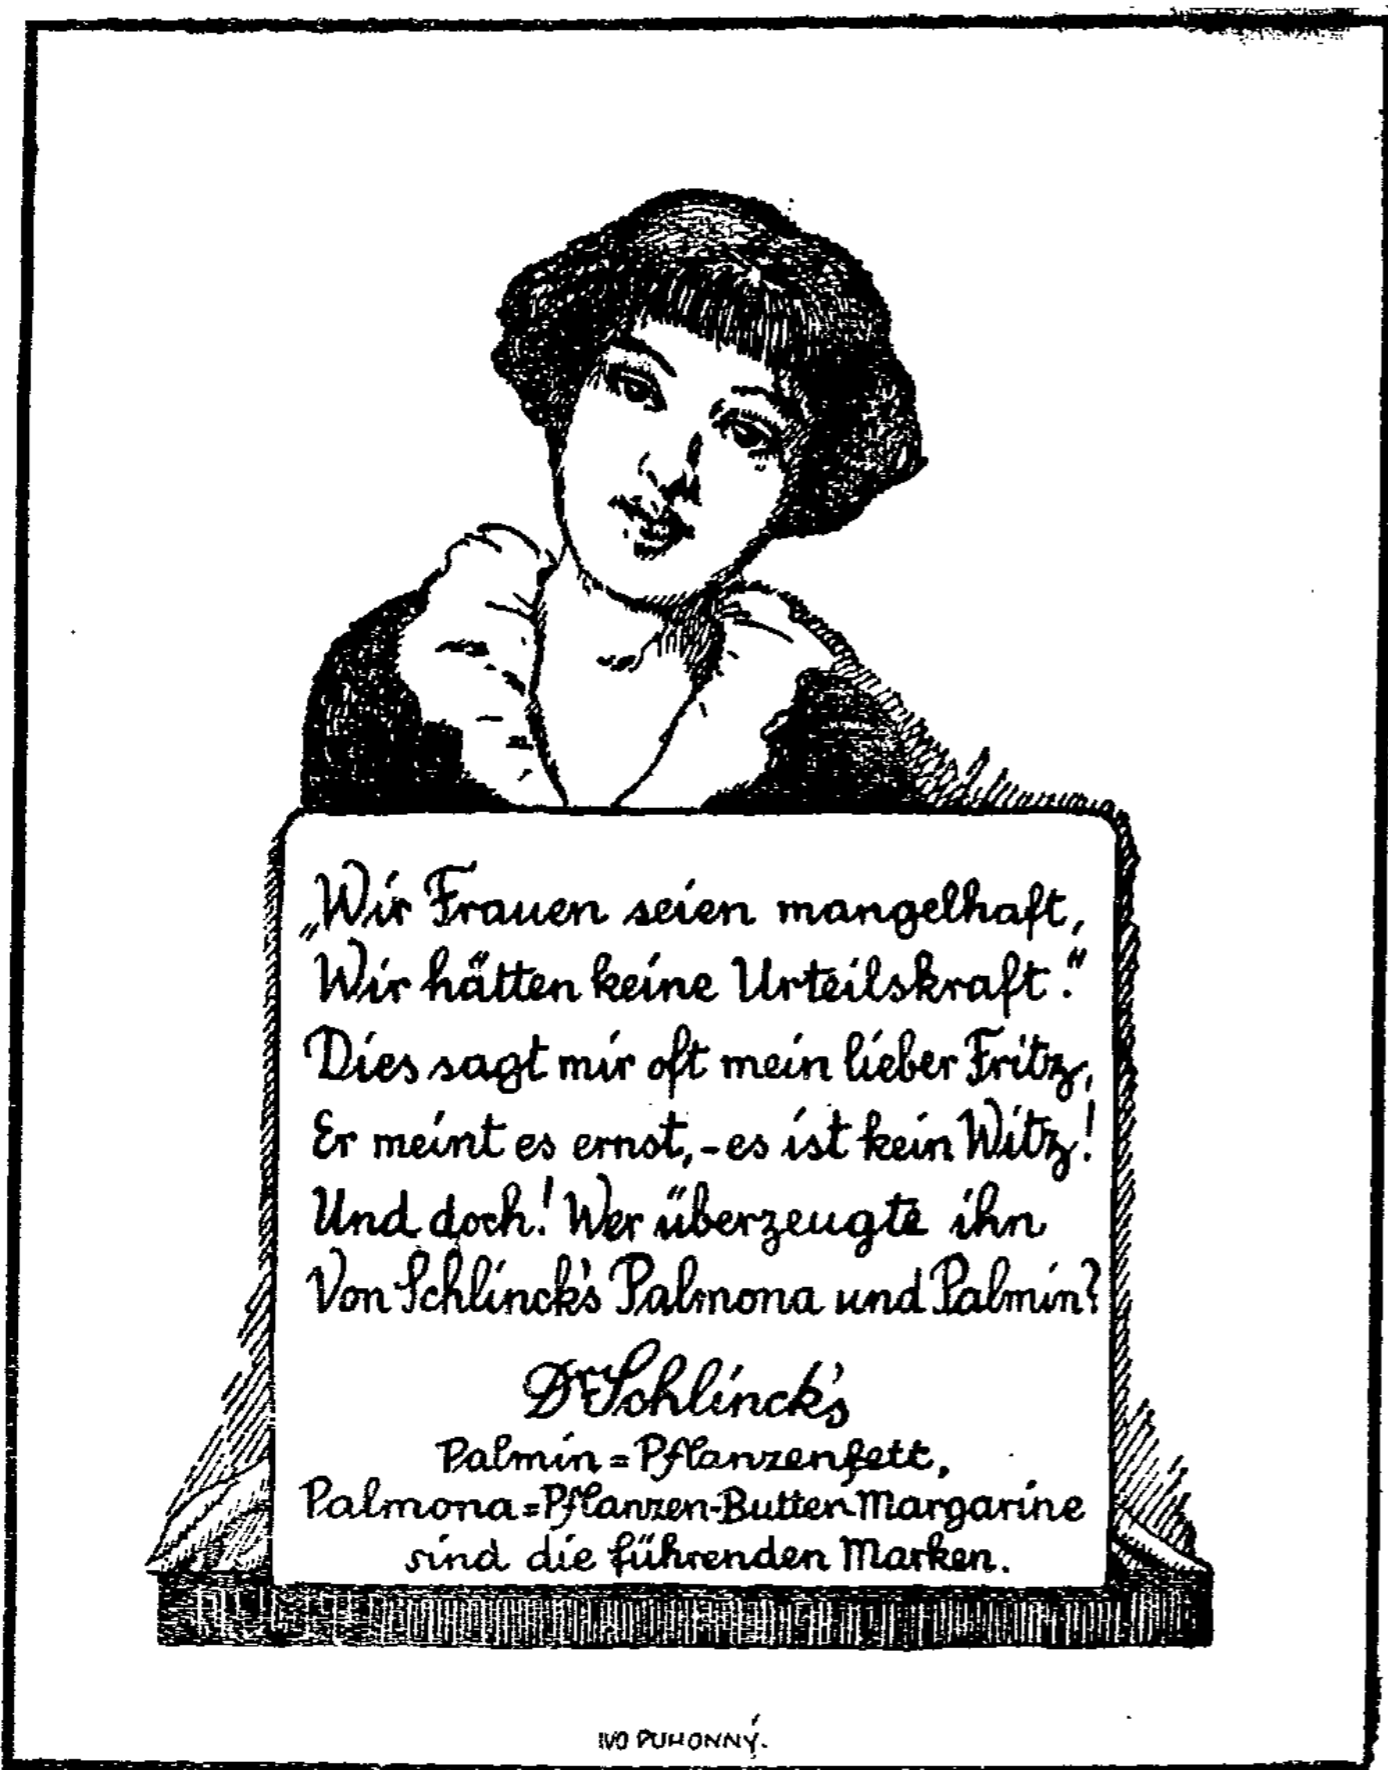 „Wir Frauen seien mangelhaft,
Wir hätten keine Urteilskraft."
Dies sagt mir oft mein lieber Fritz,
Er meint es ernst, - es ist kein Witz!
Und doch! Wer überzeugte ihn
Von Schlinck's Palmona und Palmin?
Dr Schlinck's
Palmin = Pflanzenfett,
Palmona = Pflanzen-Butter-Margarine
sind die führenden Marken.
IVO PUHONNÝ.